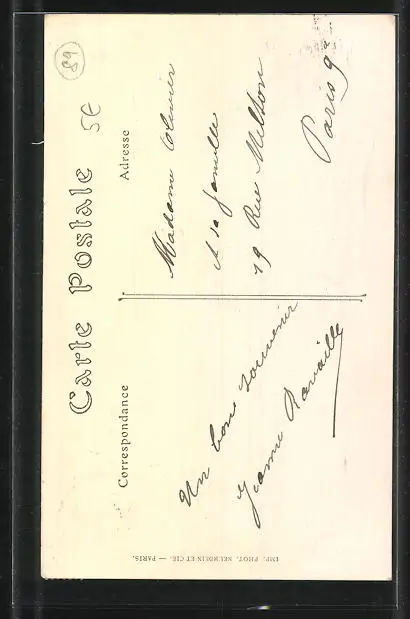 Carte Postale
Correspondance
Adresse
Un bon souvenir
Jeanne Ravaille
Madame Olivier
et sa famille
19 Rue Milton
Paris 9e
89
5E
IMP. PHOT. NEURDEIN ET CIE. — PARIS.